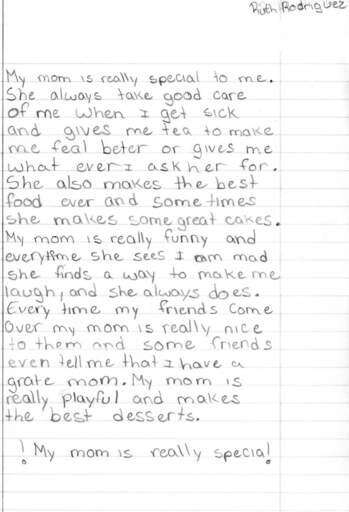 Ruth Rodriguez
My mom is really special to me.
She always take good care
of me when I get sick
and gives me tea to make
me feal beter or gives me
what ever I ask her for.
She also makes the best
food ever and some times
she makes some great cakes.
My mom is really funny and
everytime she sees I am mad
she finds a way to make me
laugh, and she always does.
Every time my friends come
over my mom is really nice
to them and some friends
even tell me that I have a
grate mom. My mom is
really playful and makes
the best desserts.
! My mom is really special